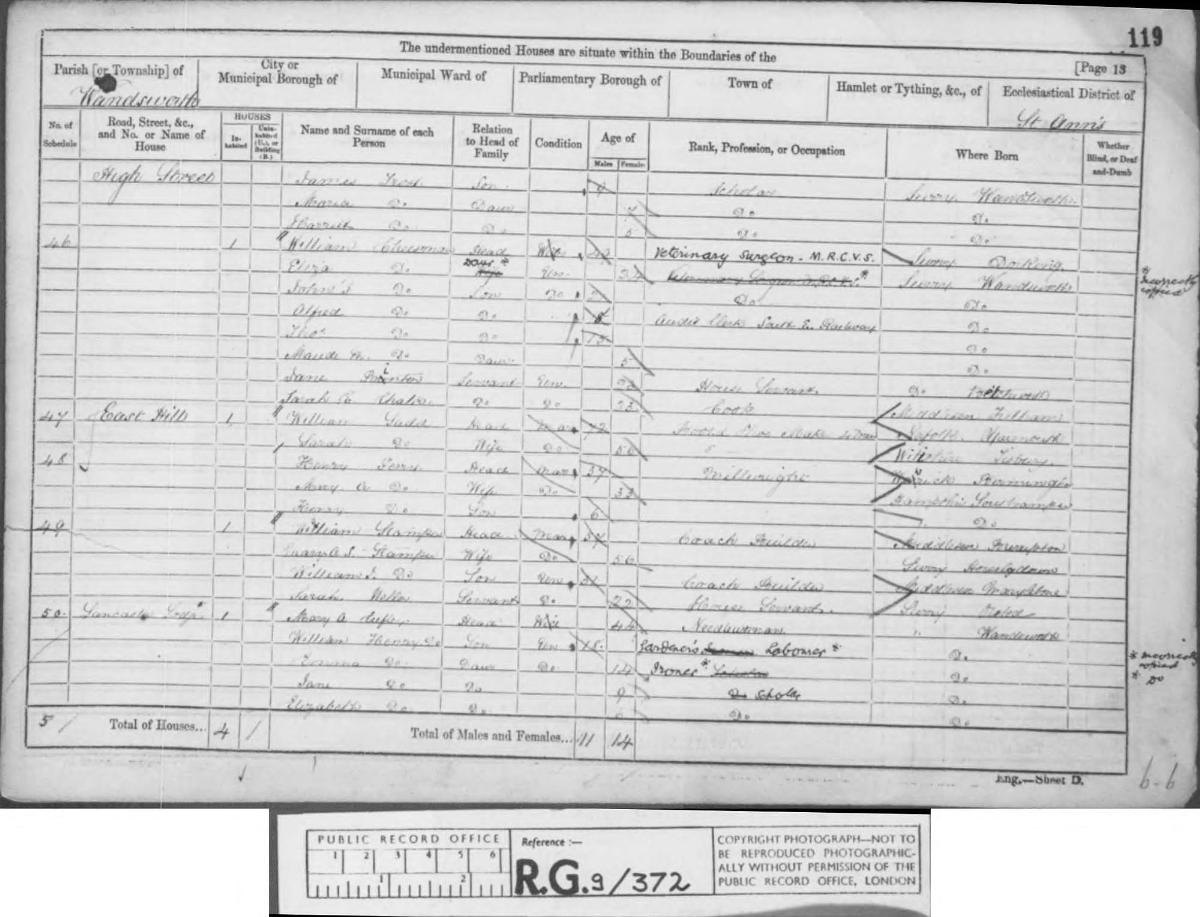 119
The undermentioned Houses are situate within the Boundaries of the
[Page 13
Parish [or Township] of
City or Municipal Borough of
Municipal Ward of
Parliamentary Borough of
Town of
Hamlet or Tything, &c., of
Ecclesiastical District of
Wandsworth
St Ann's
No. of Schedule
Road, Street, &c., and No. or Name of House
HOUSES
In-habited
Unin-habited (U.), or Building (B.)
Name and Surname of each Person
Relation to Head of Family
Condition
Age of
Males
Females
Rank, Profession, or Occupation
Where Born
Whether Blind, or Deaf and-Dumb
High Street James Son 9 Scholar Surry Wandsworth
Maria Do Daur 7 Do Do
Harriet Do Do 5 Do Do
46 1 William Head Veterinary Surgeon - M.R.C.V.S. Surry Dorking
Eliza Do Daur * Un 24 * Surry Wandsworth
John S Do Son Do Do Do
Alfred Do Do Audit Clerk South E. Railway Do
Thos Do Do 13 Do
Maude Do Daur 5 Do
Jane Servant Un House Servant Do
Sarah Do Do 23 Cook Middlesex Fulham
47 East Hill 1 William Head Mar 72 Norfolk Yarmouth
Sarah Do Wife Do 56 Wiltshire Tisbury
48 Henry Perry Head Mar 37 Millwright Warwick Birmingham
Mary A Do Wife Do 32
Henry Do Son 6 Do
49 1 William Stamper Head Mar 57 Coach Builder Middlesex
Stamper Wife Do 56 Surry Horselydown
William J. Do Son Un 31 Coach Builder Middlesex Marylebone
Sarah Weller Servant Do 22 House Servant Surry
50 1 Mary A Head Wid 44 Needlewoman " Wandsworth
William Henry Do Son Un 18 Gardener's Labourer * Do
Emma Do Daur Do 14 Ironer * Scholar Do
Jane Do Do 9 Do Scholar Do
Elizabeth Do Do 6 Do Do
* incorrectly copied
* incorrectly copied
* Do
5 Total of Houses... 4 1 Total of Males and Females... 11 14
Eng.—Sheet D.
6-6
PUBLIC RECORD OFFICE
1 2 3 4 5 6
1 2
Reference :—
R.G. 9/372
COPYRIGHT PHOTOGRAPH—NOT TO
BE REPRODUCED PHOTOGRAPHIC-
ALLY WITHOUT PERMISSION OF THE
PUBLIC RECORD OFFICE, LONDON